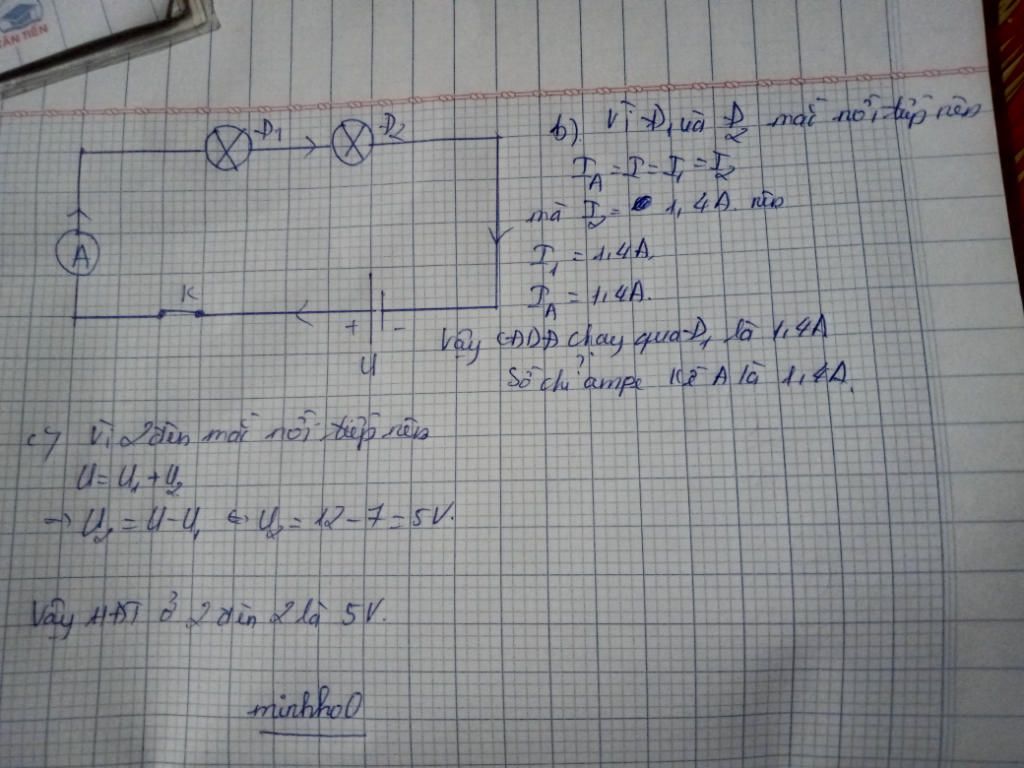 ÂN TIẾN
Đ1
Đ2
A
K
+ -
U
b) Vì Đ1 và Đ2 mắc nối tiếp nên
I_A = I = I1 = I2
mà I2 = 1,4A nên
I1 = 1,4A.
I_A = 1,4A.
Vậy CĐDĐ chạy qua Đ1 là 1,4A
Số chỉ ampe kế A là 1,4A.
c) Vì 2 đèn mắc nối tiếp nên
U = U1 + U2
→ U2 = U - U1 ⇔ U2 = 12 - 7 = 5V.
Vậy HĐT ở 2 đèn 2 là 5V.
minhho0